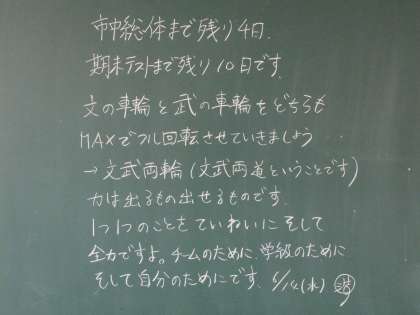 市中総体まで残り4日.
期末テストまで残り10日です.
文の車輪と武の車輪をどちらも
MAXでフル回転させていきましょう
→文武両輪(文武両道ということです)
力は出るもの出せるものです.
1つ1つのことをていねいにそして
全力ですよ。チームのために.学級のために
そして自分のためにです. 6/14(水)